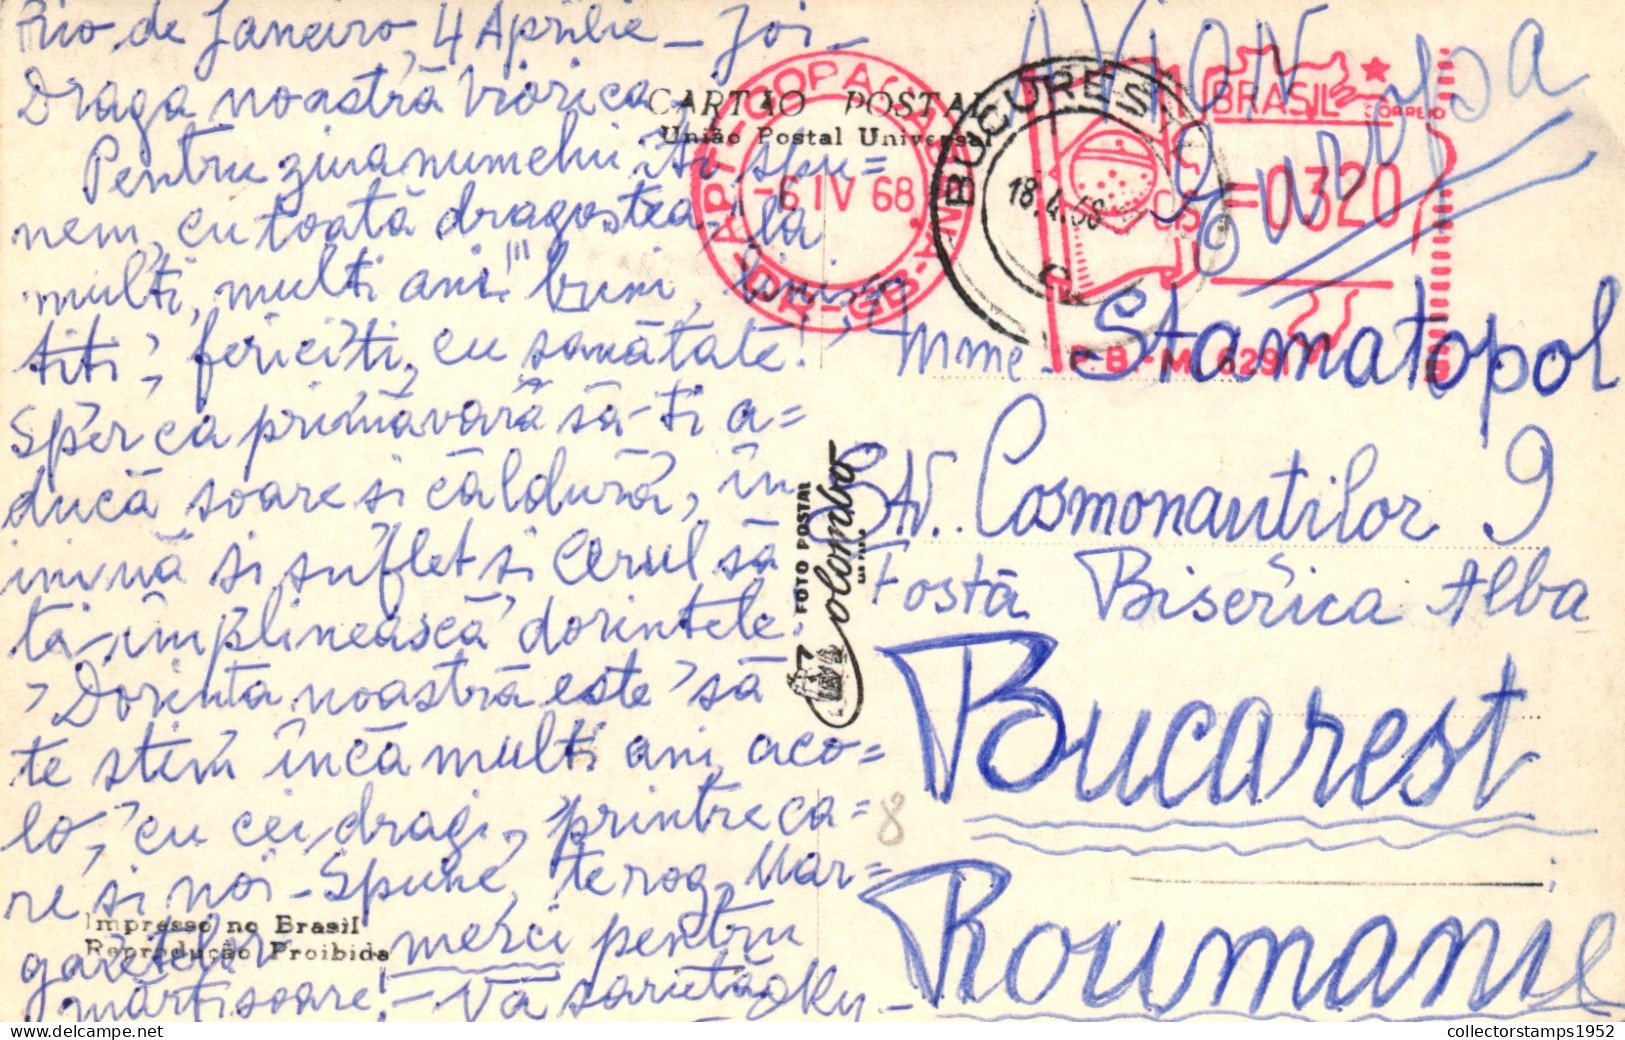 Rio de Janeiro, 4 Aprilie - Joi -
Draga noastră Viorica
Pentru ziua numelui iti spu=
nem, cu toată dragostea, "la
multi, multi ani!" buni, linis=
titi, fericiti, cu sanătate!
Sper ca primăvară să-ti a=
ducă soare si căldură, în
inimă si suflet si Cerul să
ti-împlinească dorintele
Dorinta noastră este să
te stim încă multi ani, aco=
lo, cu cei dragi, printre ca=
re si noi - Spune, te rog, Mar=
garetelor, merci pentru
martisoare! - Vă sarută
CARTÃO POSTAL
União Postal Universal
AVION
Europa
-6 IV 68
BUCUREȘTI
18.4.68
BRASIL
CORREIO
=0320
Mme. Stamatopol
Str. Cosmonautilor 9
Fostă Biserica Alba
Bucarest
Roumanie
FOTO POSTAL
Colombo
8
Impresso no Brasil
Reprodução Proibida
collectorstamps1952